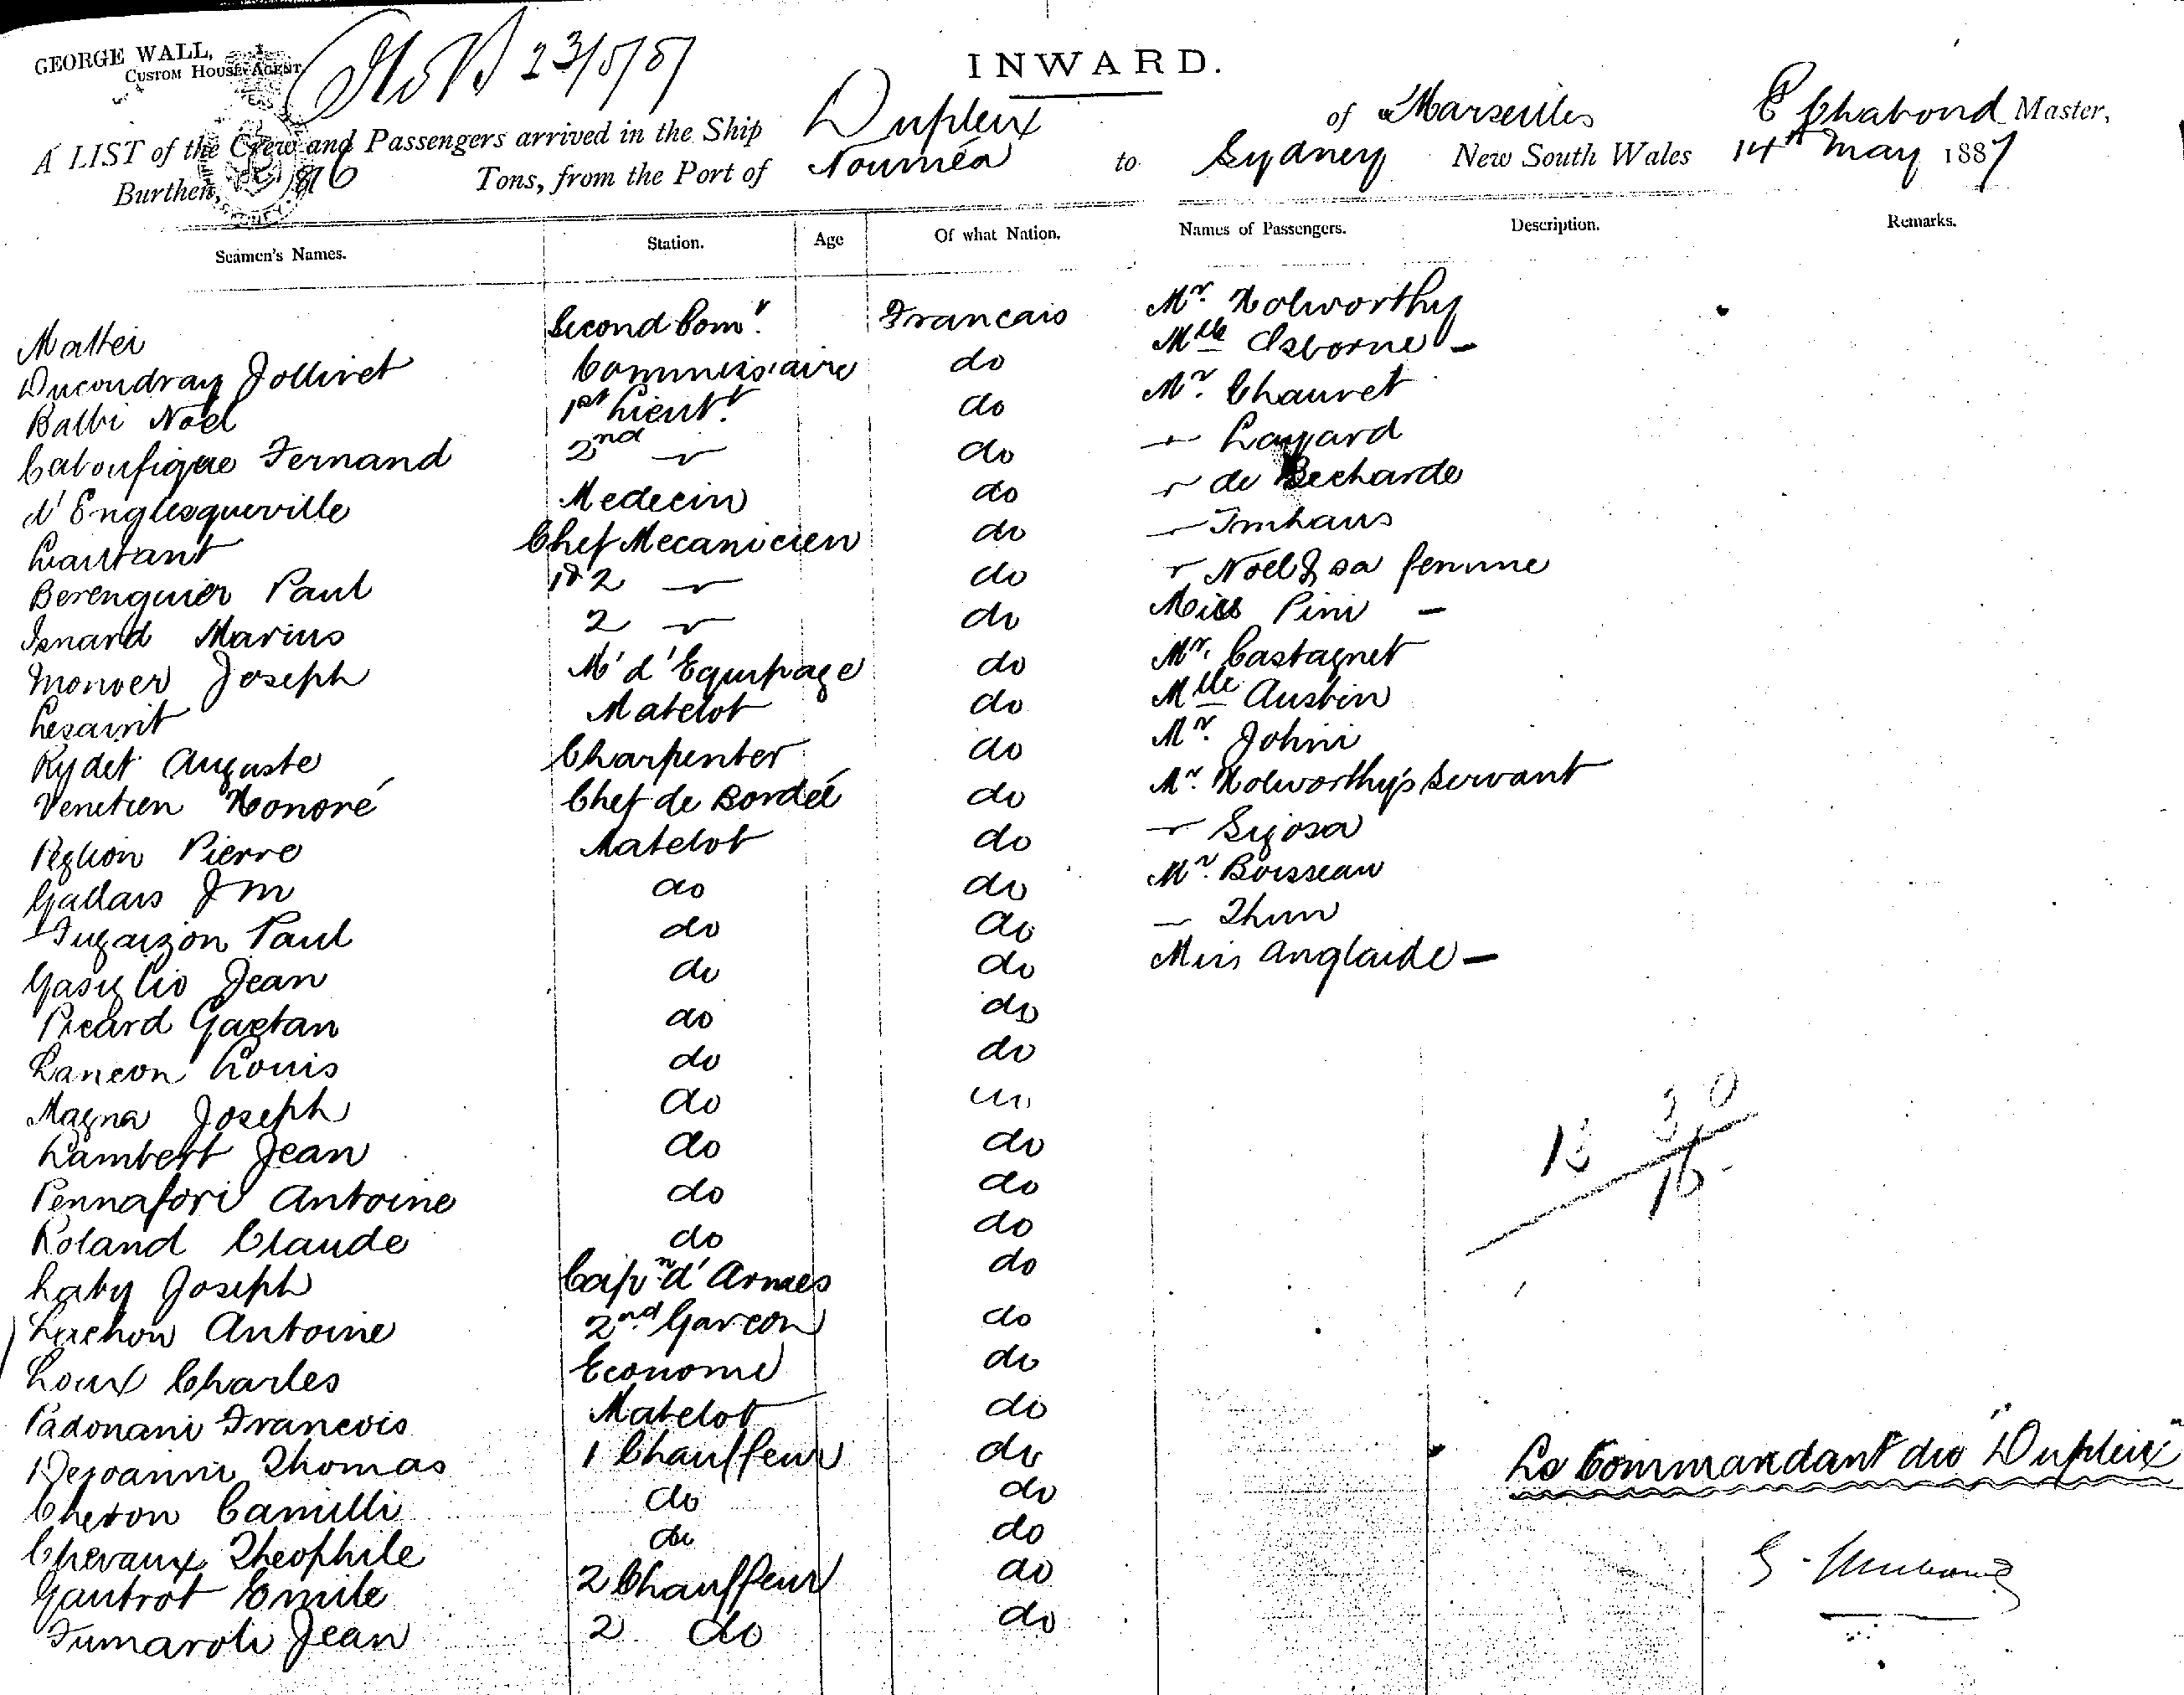 GEORGE WALL,
CUSTOM HOUSE AGENT.
23/5/87
INWARD.
A LIST of the Crew and Passengers arrived in the Ship Dupleix of Marseilles E Chabond Master,
Burthen, Tons, from the Port of Nouméa to Sydney New South Wales 14th May 1887
Seamen's Names. Station. Age Of what Nation. Names of Passengers. Description. Remarks.
Mattei Second Comr. Francais Mr. Holworthy
Ducoudray Jollivet Commissaire do Mlle Osborne -
Balbi Noel 1st Lieutt. do Mr. Chauvet
Fernand 2nd do Layard
d'Englesqueville Medecin do de Becharde
Chef Mecanicien do Imhaus
Berenguier Paul 2 do Noel & sa femme
Isnard Marius 2 do Miss Pini -
Monver Joseph Me d'Equipage do Mr. Castagnet
Matelot do Mlle Austin
Rydet Auguste Charpenter do Mr. Johni
Venetien Honoré Chef de Bordée do Mr. Holworthy's Servant
Peglion Pierre Matelot do
Gallais J m do do Mr. Boisseau
Fugaizon Paul do do Thun
Gasiglio Jean do do Miss Anglaide -
Picard Gaetan do do
Lancon Louis do do
Magna Joseph do
Lambert Jean do do
Pennafori Antoine do do
Roland Claude do do
Laby Joseph Capn d'Armes do
Antoine 2nd Garcon do
Loux Charles Econome do
Padonani Francois Matelot do
Dejoanni Thomas 1 Chauffeur do
Cheron Camilli do do
Chevaux Theophile do do
Gautrot Emile 2 Chauffeur do
Fumaroli Jean 2 do do
30
16
Le Commandant du "Dupleix"